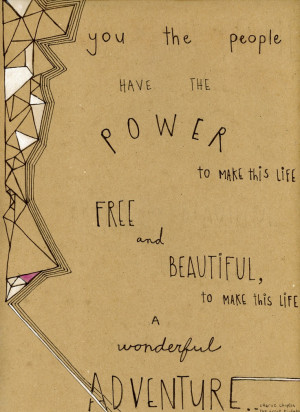 you the people
HAVE THE
POWER
to MAKE this LIFE
FREE
and
BEAUTIFUL,
to MAKE this LIFE
A
wonderful
ADVENTURE..